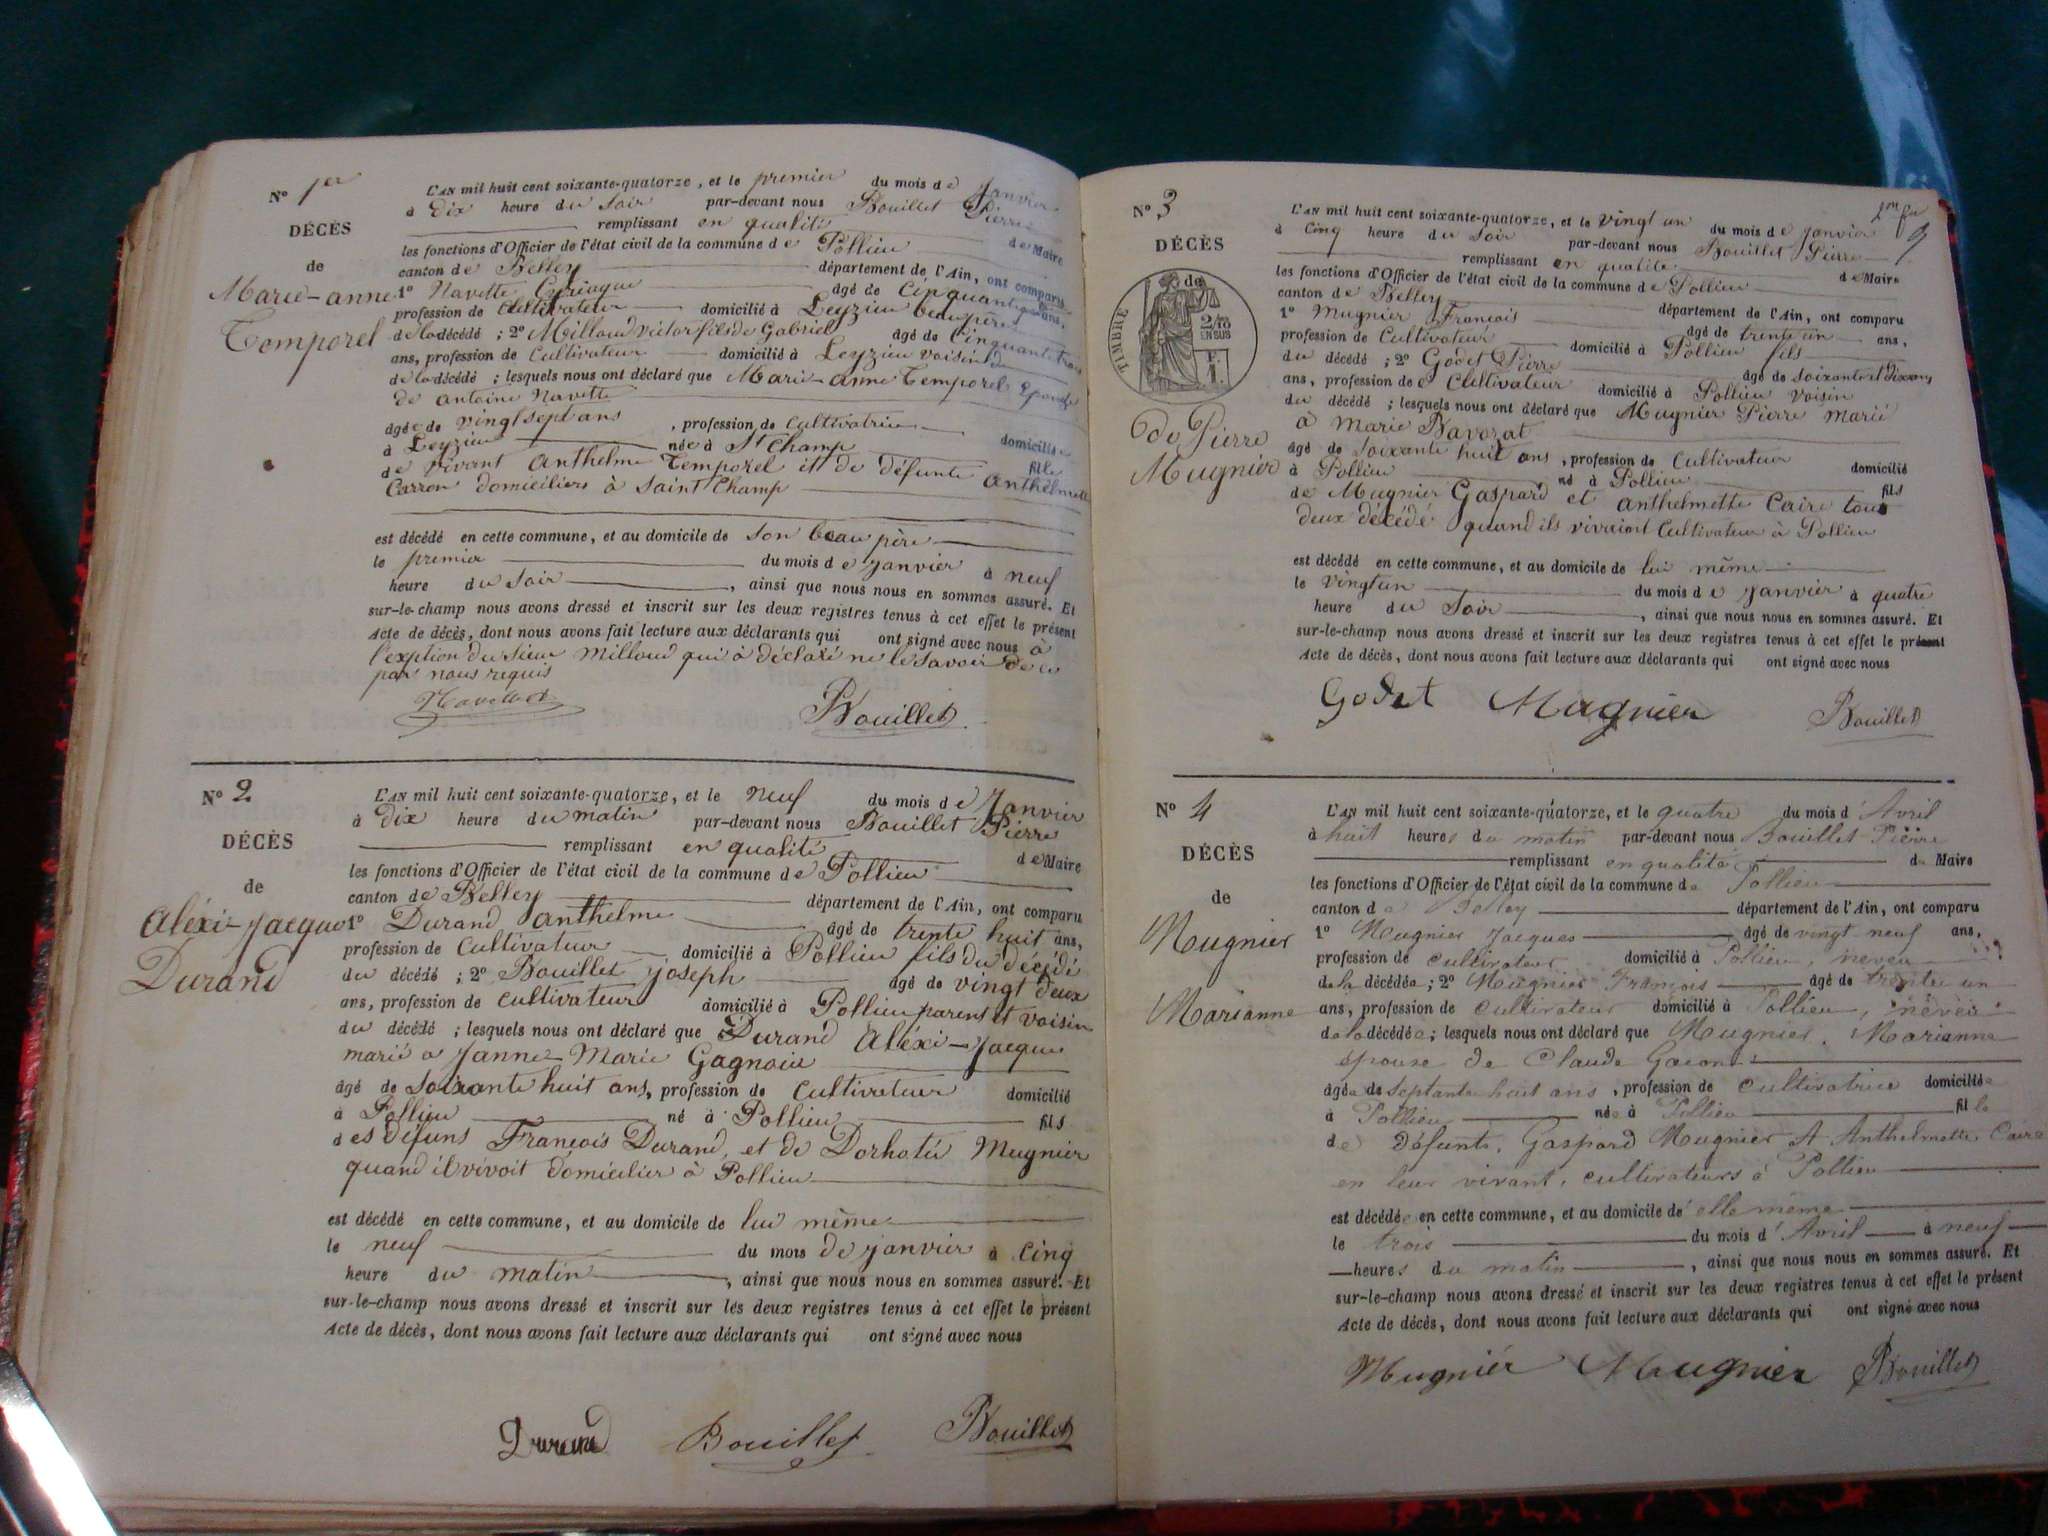 N° 1er
DÉCÈS
de
Marie-anne
Temporel
L'AN mil huit cent soixante-quatorze, et le premier du mois de Janvier
à Dix heure du Soir par-devant nous Bouillet Pierre
remplissant en qualité de Maire
les fonctions d'Officier de l'état civil de la commune de Pollieu
canton de Belley département de l'Ain, ont comparu
1° Navette Cyriaque âgé de Cinquante ans,
profession de Cultivateur domicilié à Leyzieu beau père
de la décédé ; 2° Milloud victor fils de Gabriel âgé de Cinquante trois
ans, profession de Cultivateur domicilié à Leyzieu voisin
de la décédé ; lesquels nous ont déclaré que Marie-anne Temporel Epouse
de antoine Navette
âgée de vingt sept ans , profession de Cultivatrice domiciliée
à Leyzieu née à St Champ fille
de vivant Anthelme Temporel et de défunte anthelmette
Carron domiciliers à Saint Champ
est décédé en cette commune, et au domicile de son beau père
le premier du mois de janvier à neuf
heure du Soir , ainsi que nous nous en sommes assuré. Et
sur-le-champ nous avons dressé et inscrit sur les deux registres tenus à cet effet le présent
Acte de décès, dont nous avons fait lecture aux déclarants qui ont signé avec nous à
l'exption du Sieur Milloud qui à déclaré ne le Savoir de ce
par nous requis
Bouillet
N° 2
DÉCÈS
de
Aléxi-Jacque
Durand
L'AN mil huit cent soixante-quatorze, et le neuf du mois de Janvier
à Dix heure du matin par-devant nous Bouillet Pierre
remplissant en qualité de Maire
les fonctions d'Officier de l'état civil de la commune de Pollieu
canton de Belley département de l'Ain, ont comparu
1° Durand Anthelme âgé de trente huit ans,
profession de Cultivateur domicilié à Pollieu fils du décédé
du décédé ; 2° Bouillet joseph âgé de vingt deux
ans, profession de Cultivateur domicilié à Pollieu parent et voisin
du décédé ; lesquels nous ont déclaré que Durand Aléxi-Jacque
marié a Janne-Marie
âgé de Soixante huit ans, profession de Cultivateur domicilié
à Pollieu né à Pollieu fils
des défuns François Durand, et de Dorhotée Mugnier
quand il vivoit domicilier à Pollieu
est décédé en cette commune, et au domicile de lui même
le neuf du mois de janvier à Cinq
heure du matin , ainsi que nous nous en sommes assuré. Et
sur-le-champ nous avons dressé et inscrit sur les deux registres tenus à cet effet le présent
Acte de décès, dont nous avons fait lecture aux déclarants qui ont signé avec nous
Durand Bouillet Bouillet
N° 3
DÉCÈS
de
TIMBRE
2/10
EN SUS
de Pierre
Mugnier
L'AN mil huit cent soixante-quatorze, et le vingt un du mois de janvier
à Cinq heure du Soir par-devant nous Bouillet Pierre
remplissant en qualité de Maire
les fonctions d'Officier de l'état civil de la commune de Pollieu
canton de Belley département de l'Ain, ont comparu
1° Mugnier François âgé de trente un ans,
profession de Cultivateur domicilié à Pollieu fils
du décédé ; 2° Godet Pierre âgé de Soixante et Dix
ans, profession de Cultivateur domicilié à Pollieu voisin
du décédé ; lesquels nous ont déclaré que Mugnier Pierre marié
à Marie Bavozat
âgé de Soixante huit ans , profession de Cultivateur domicilié
à Pollieu né à Pollieu fils
de Mugnier Gaspard et anthelmette Caire tous
deux décédé quand ils vivaient Cultivateur à Pollieu
est décédé en cette commune, et au domicile de lui même
le vingt un du mois de janvier à quatre
heure du Soir , ainsi que nous nous en sommes assuré. Et
sur-le-champ nous avons dressé et inscrit sur les deux registres tenus à cet effet le présent
Acte de décès, dont nous avons fait lecture aux déclarants qui ont signé avec nous
Godet Mugnier Bouillet
N° 4
DÉCÈS
de
Mugnier
Marianne
L'AN mil huit cent soixante-quatorze, et le quatre du mois d'Avril
à huit heures du matin par-devant nous Bouillet Pierre
remplissant en qualité du Maire
les fonctions d'Officier de l'état civil de la commune de Pollieu
canton de Belley département de l'Ain, ont comparu
1° Mugnier Jacques âgé de vingt neuf ans,
profession de cultivateur domicilié à Pollieu, neveu
de la décédée ; 2° Mugnier François âgé de trente un
ans, profession de cultivateur domicilié à Pollieu, neveu
de la décédée ; lesquels nous ont déclaré que Mugnier, Marianne
épouse de Claude
âgée de septante huit ans , profession de cultivatrice domiciliée
à Pollieu née à Pollieu fille
de Défunts, Gaspard Mugnier et Anthelmette Caire
en leur vivant, cultivateurs à Pollieu
est décédée en cette commune, et au domicile de elle même
le trois du mois d'Avril à neuf
heures du matin , ainsi que nous nous en sommes assuré. Et
sur-le-champ nous avons dressé et inscrit sur les deux registres tenus à cet effet le présent
Acte de décès, dont nous avons fait lecture aux déclarants qui ont signé avec nous
Mugnier Mugnier Bouillet